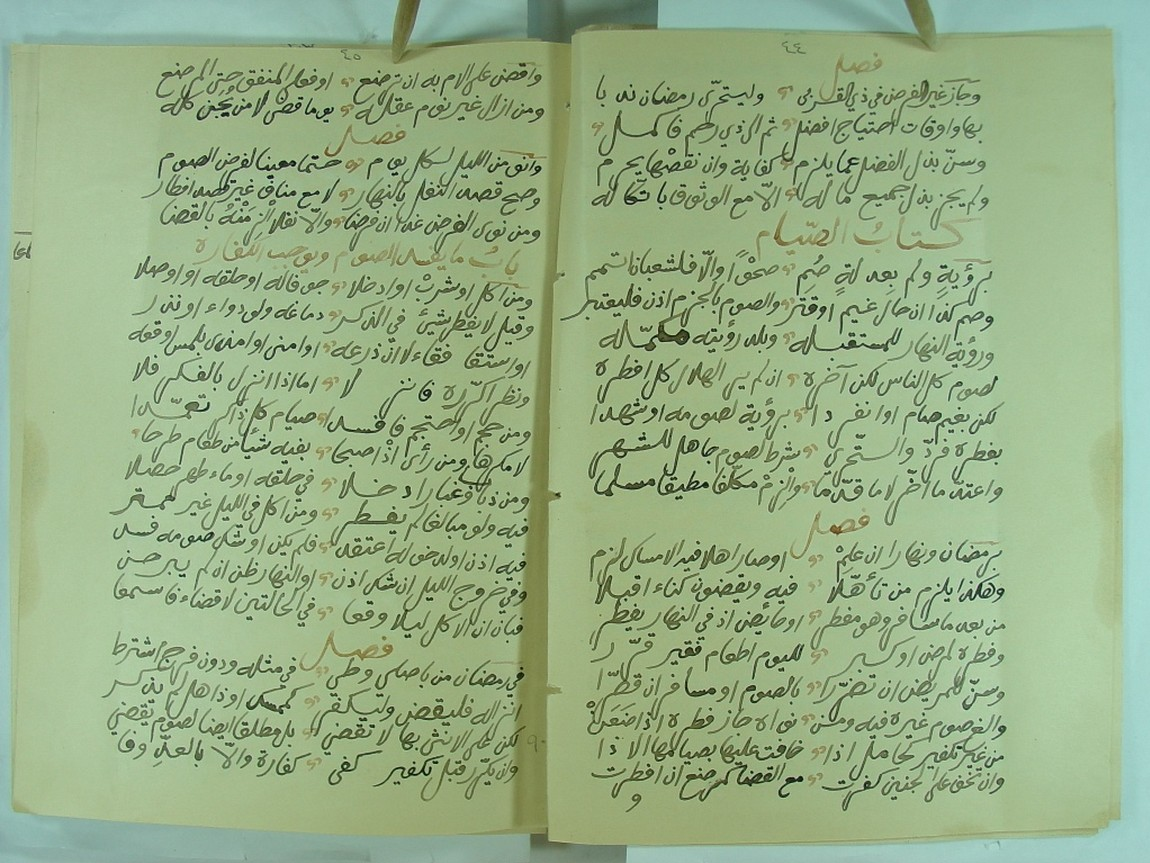 ٤٤
فصل
وجاز غير الفرض في ذي القربى وليتحرى رمضان ندبا
بها واوقات احتياج افضل ثم الى ذي رحم فاكمل
وسن بذل الفضل عما يلزم كفاية وان نقصها يحرم
ولم يجز بذل جميع ماله الا مع الوثوق باتكاله
كتاب الصيام
برؤية ولم بعدلة صم صحوا والا فلشعبانا تمم
وصم كذا ان حال غيم او قتر والصوم بالجزم اذن فليعتبر
ورؤية النهار للمستقبله وبلد رؤيته
لصوم كل الناس لكن آخره ان لم ير الهلال كل افطره
لكن بغيم صام او انفردا برؤية لصومه او شهدا
بفطره فرد والتحري شرط لصوم جاهل للشهر
واعتد ما اخر لا ما قدما والزم مكلفا مطيقا مسلما
فصل
برمضان ونهارا ان علم او صار اهلا فيه الامساك لزم
وهكذا يلزم من تأهلا فيه ويقضون كناء اقبلا
من بعد ما سافر وهو مفطر او حائض اذ في النهار يفطر
وفطره لمرض او كبر لليوم اطعام فقير قرر
وسن للمريض ان تضررا بالصوم او مسافر ان فطرا
والغ صوم غيره فيه ومن نواه جاز فطره اذا ضعن
من غير تكفير كحامل اذا خافت عليها بصيامها الاذا
وان تخف على الجنين كفرت مع القضا كمرضع ان افطرت
و
٤٥
واقض على الام به ان ترضع او فعل المنفق حتى المرضع
ومن ازال غير نوم عقله يوما قضى لا من يجن كله
فصل
وانو من الليل لكل يوم حتما معينا لفرض الصوم
وصح قصد النفل بالنهار لا مع مناف غير قصد افطار
ومن نوى الفرض غدا ان فرضا والا نفلا الزمنه بالقضا
باب ما يفسد الصوم ويوجب الكفارة
ومن اكل او شرب او ادخلا جوفا له او حلقه او اوصلا
وقيل لا يفطر شيئ في الذكر دماغه ولو دواء او نذر
او استقا فقاء لا ان ذرعه او امنى او امذى بلمس اوقعه
ونظر اكرره فانز لا اما اذا انزل بالفكر فلا
ومن حجم او احتجم فافسدا صيام كل ذاكر تعمدا
لا مكرها ومن رأى اذ اصبحا بفيه شيئا من طعام طرحا
ومن ذبابا وغبارا دخلا في حلقه او ماء طهر حصلا
فيه ولو مبالغا لم يفطر ومن اكل في الليل غير
فيه اذن او لدخوله اعتقد فلم يكن او شك صومه فسد
وفي خروج الليل ان شك اذن او النهار ظن ان لم يبرحن
فبان ان الاكل ليلا وقعا في الحالتين لا قضاء فاسمعا
فصل
في رمضان من باصلي وطي في مثله ودون فرج اشترط
انزاله فليقض وليكفر كممسك او ذاهل لم يذكر
لكن على الانثى بها لا تقضي بل مطلقا ايضا لصوم تقضي
وان يكرر قبل تكفير كفى كفارة والا بالعد وفا